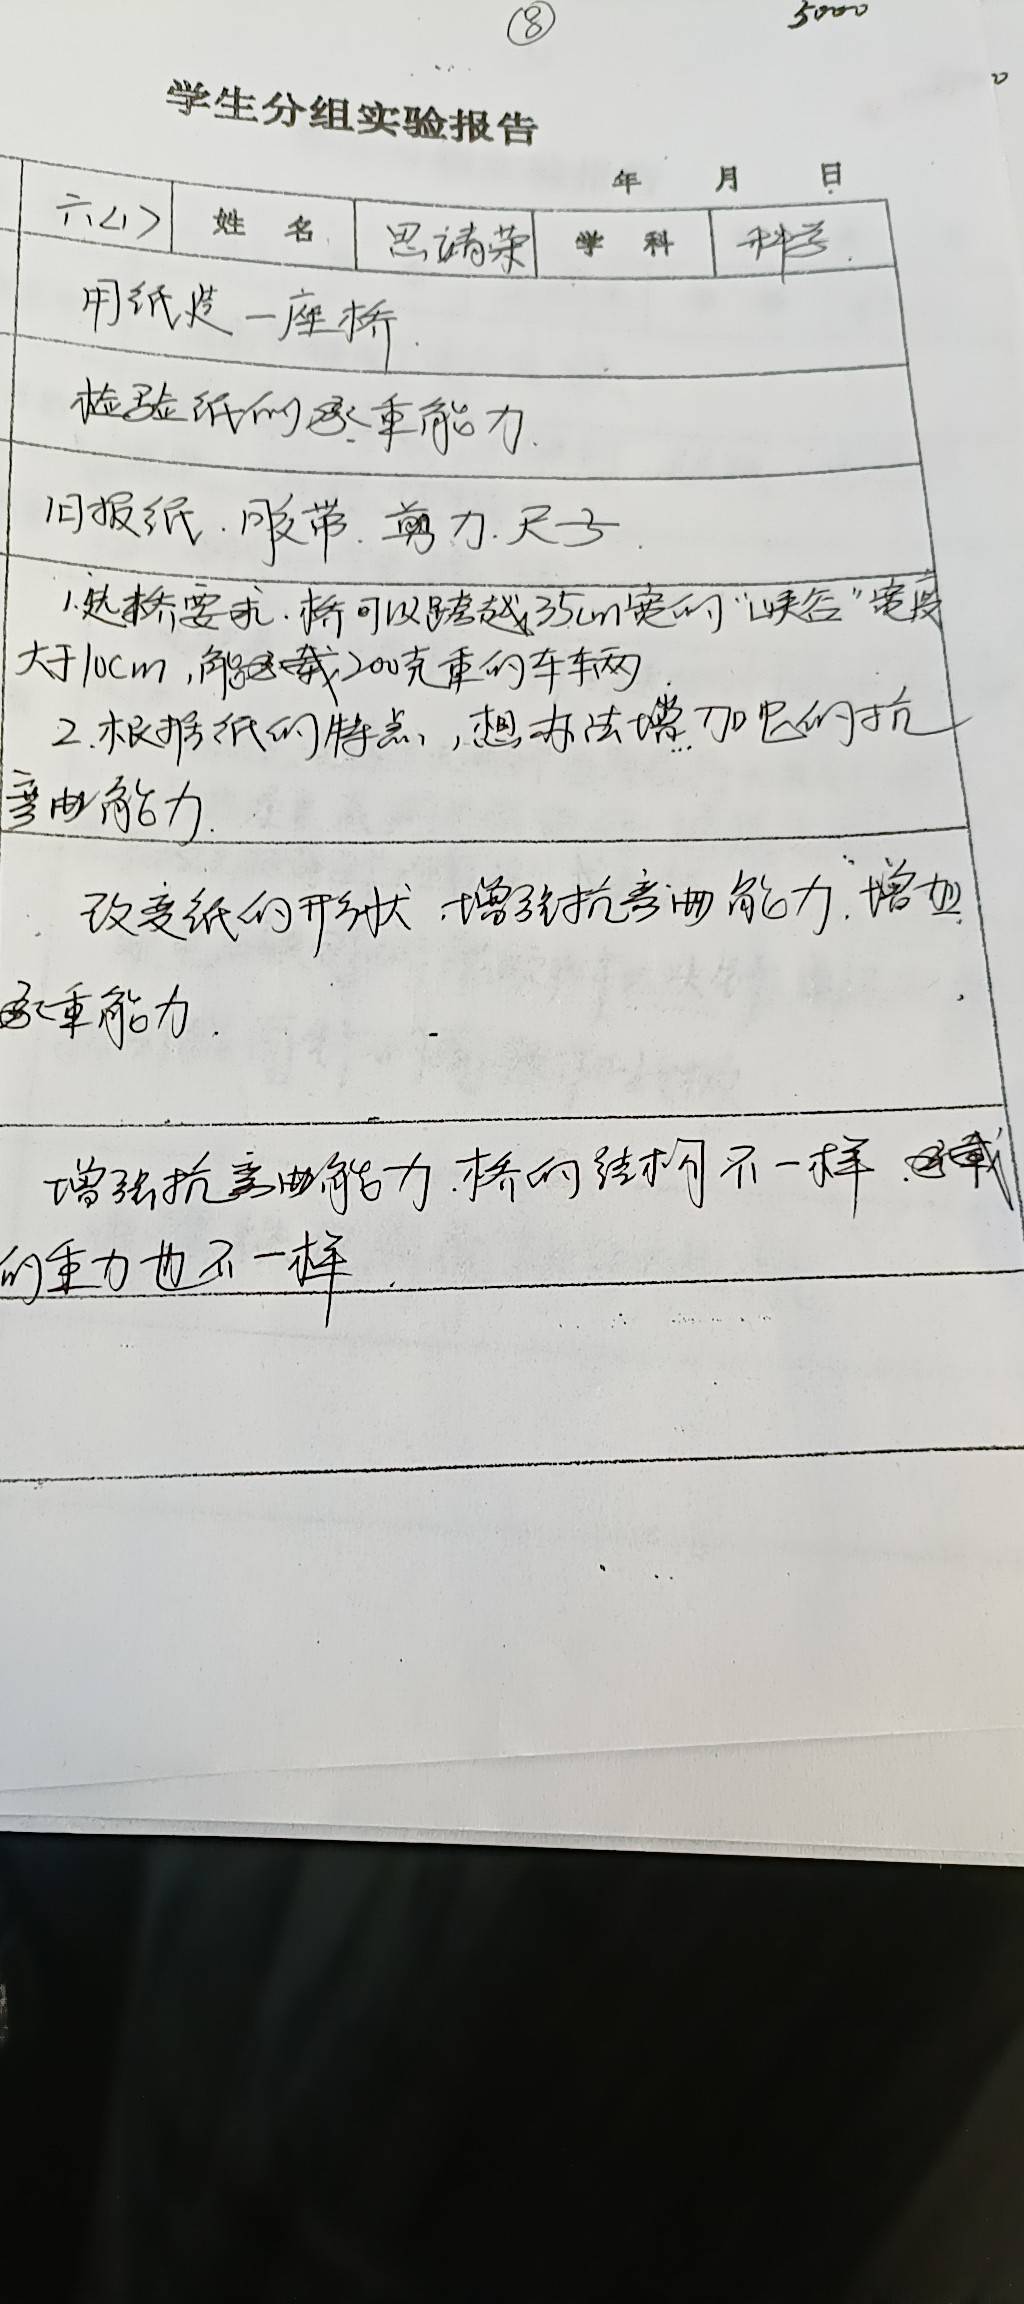 ⑧ 5000
学生分组实验报告
年 月 日
六<1> 姓 名 思靖荣 学 科 科学
用纸造一座桥.
检验纸的承重能力.
旧报纸.胶带.剪力.尺子.
1.造桥要求.桥可以跨越35cm宽的“峡谷”宽度
大于10cm,能承载200克重的车车辆.
2.根据纸的特点,想办法增加它的抗
弯曲能力.
改变纸的形状.增强抗弯曲能力.增加
承重能力.
增强抗弯曲能力.桥的结构不一样.承载
的重力也不一样.